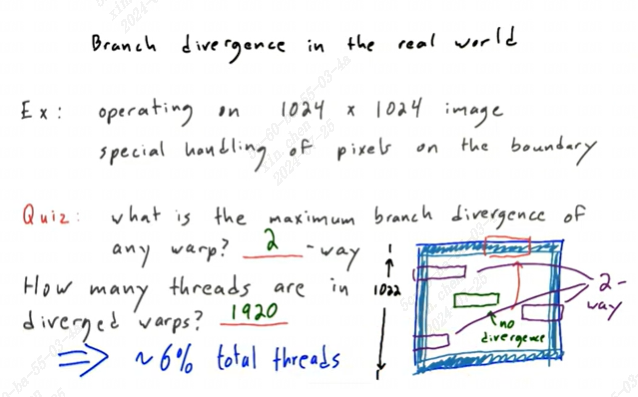 Branch divergence in the real world
Ex: operating on 1024 x 1024 image
special handling of pixels on the boundary
Quiz: what is the maximum branch divergence of
any warp? 2 -way
How many threads are in
diverged warps? 1920
⇒ ~6% total threads
1
1022
1
no
divergence
2-
way